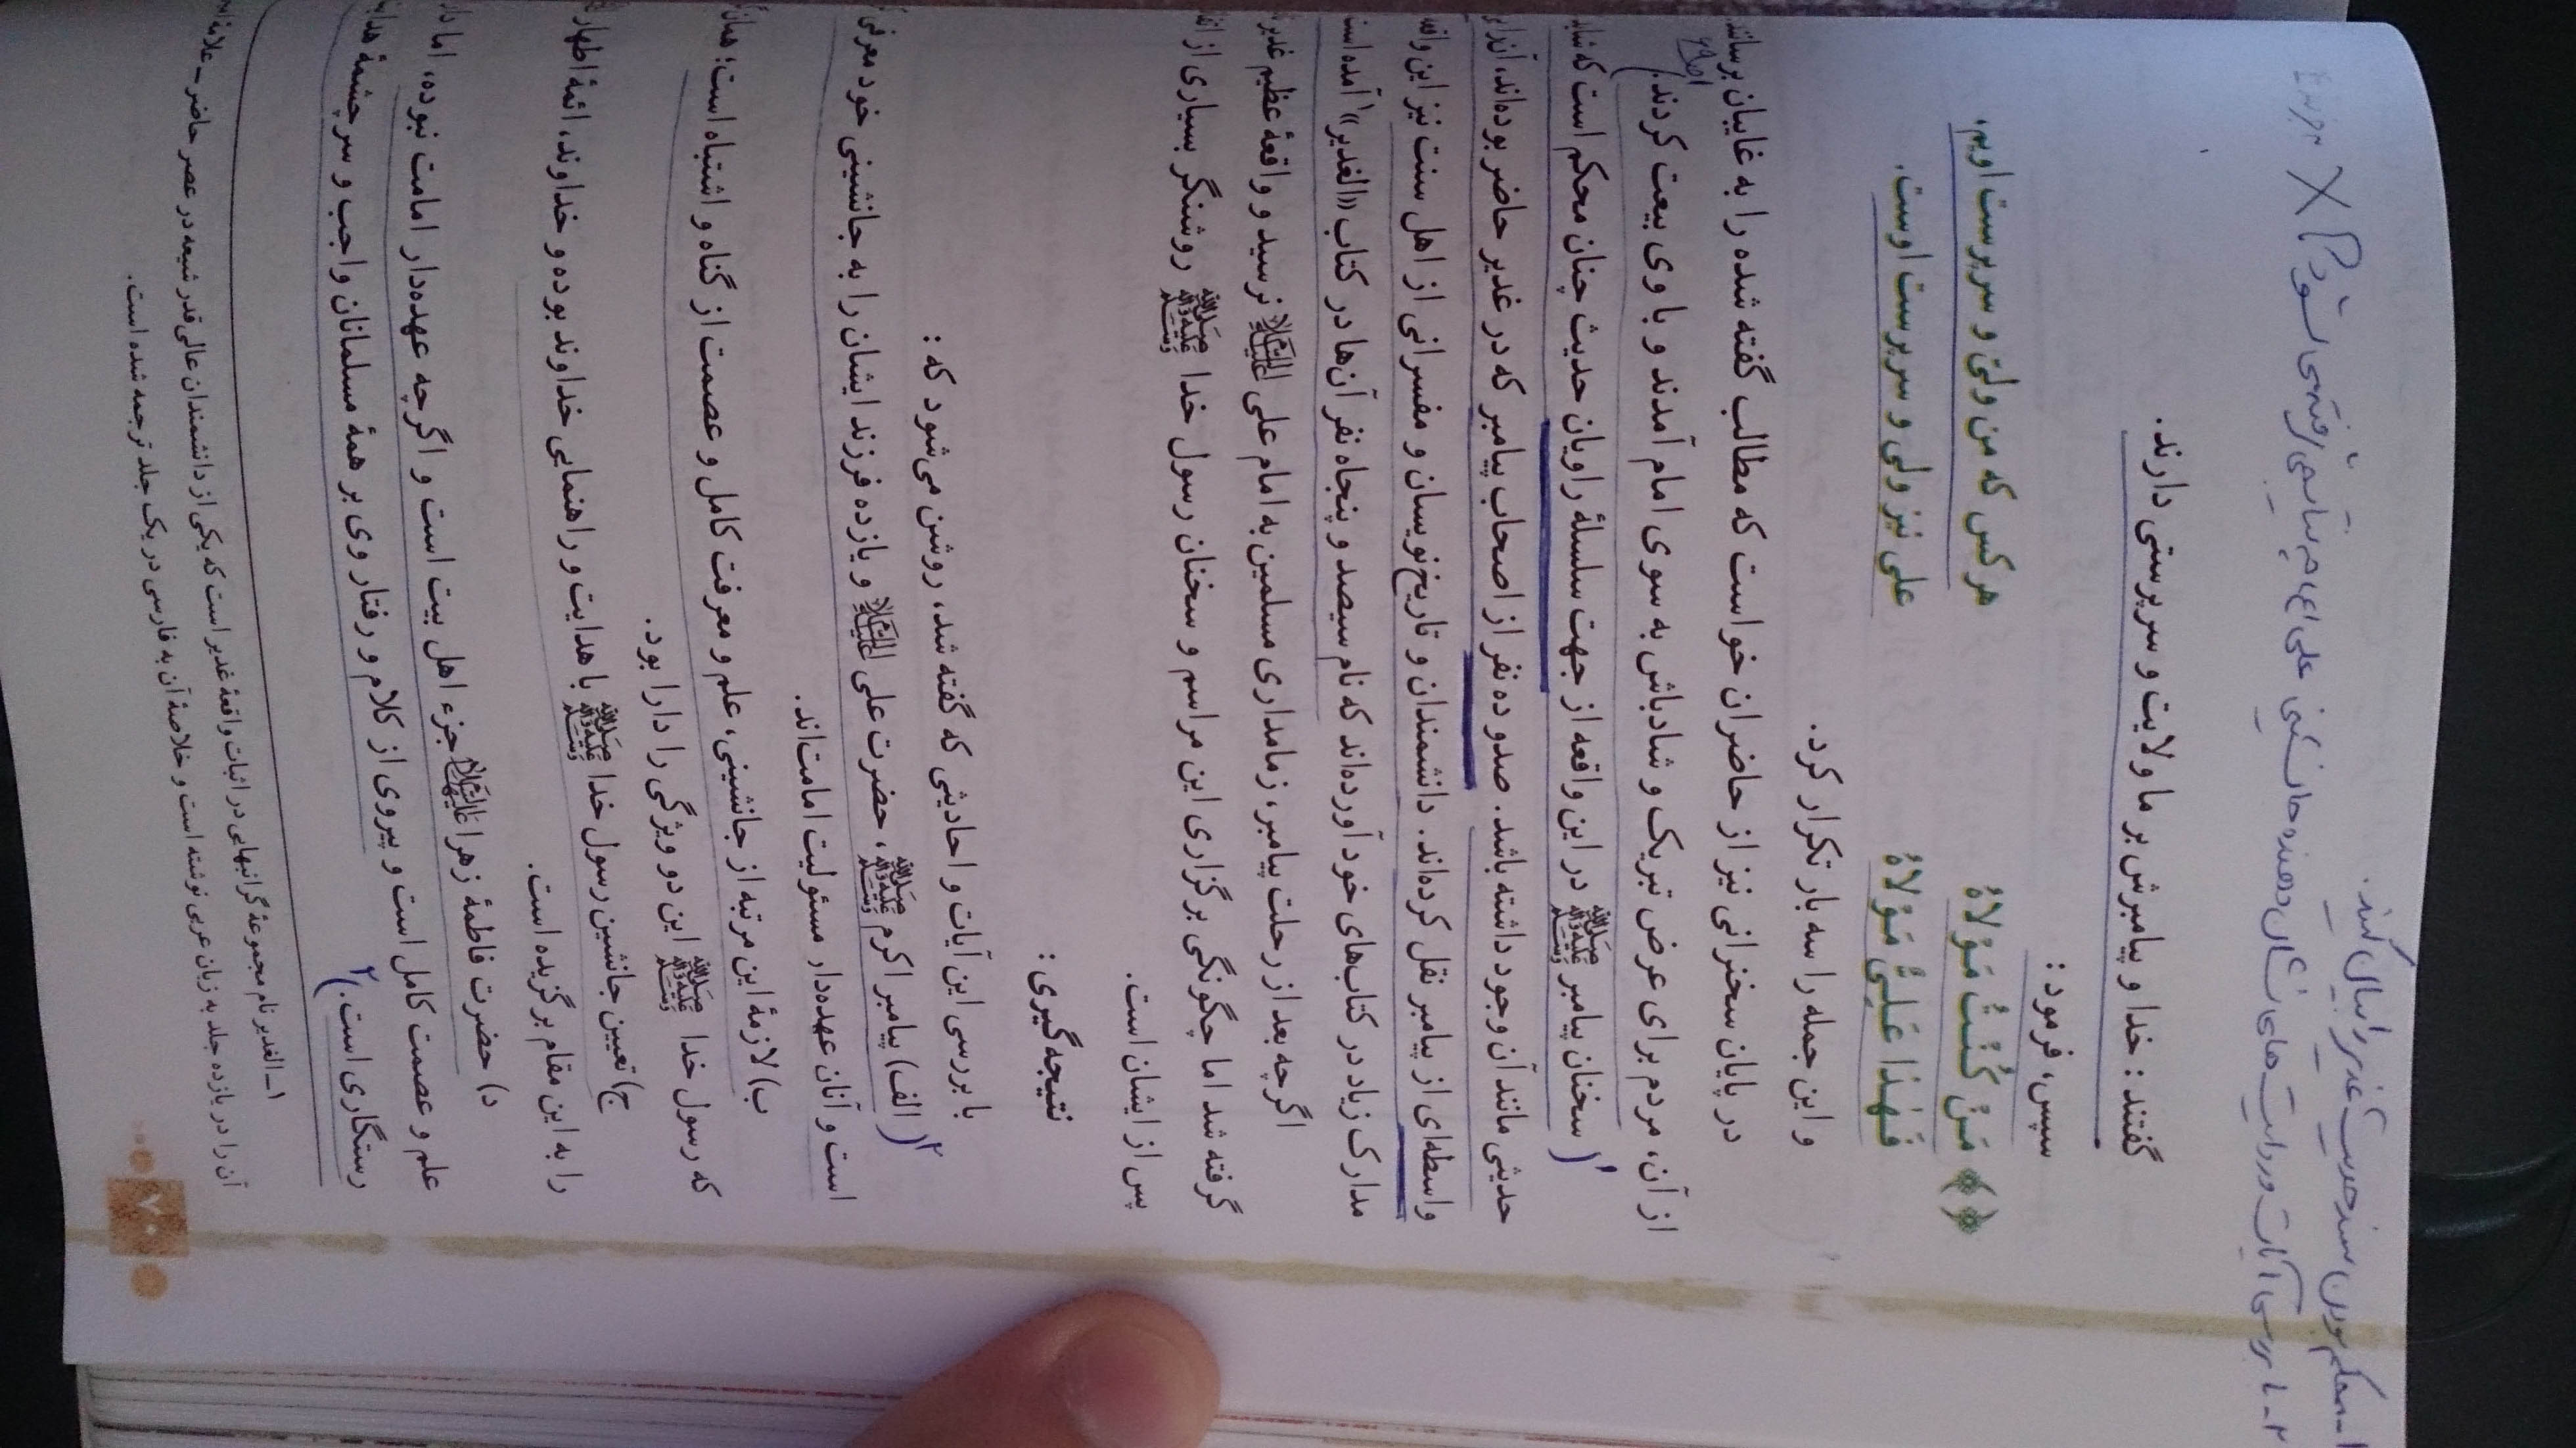 ۱ـ محکم بودن سند حدیث غدیر را بیان کنید.
۲ـ با بررسی آیات و روایت های نشان دهنده جانشینی علی (ع)
گفتند : خدا و پیامبرش بر ما ولایت و سرپرستی دارند.
سپس، فرمود :
مَنْ كُنْتُ مَوْلاهُ هر کس که من ولیّ و سرپرست اویم،
فَهٰذا عَلِىٌّ مَوْلاهُ علی نیز ولی و سرپرست اوست.
و این جمله را سه بار تکرار کرد.
در پایان سخنرانی نیز از حاضران خواست که مطالب گفته شده را به غایبان برسانند
از آن، مردم برای عرض تبریک و شادباش به سوی امام آمدند و با وی بیعت کردند.
۱ (سخنان پیامبر ﷺ در این واقعه از جهت سلسلهٔ راویان حدیث چنان محکم است که
حدیثی مانند آن وجود داشته باشد. صدو ده نفر از اصحاب پیامبر که در غدیر حاضر بوده‌اند،
واسطه‌ای از پیامبر نقل کرده‌اند. دانشمندان و تاریخ‌نویسان و مفسرانی از اهل سنت نیز این
مدارک زیاد در کتاب‌های خود آورده‌اند که نام سیصد و پنجاه نفر آن‌ها در کتاب «الغدیر»۱ آمده
اگرچه بعد از رحلت پیامبر، زمامداری مسلمین به امام علی علیه السلام نرسید و واقعهٔ عظیم غدیر
گرفته شد اما چگونگی برگزاری این مراسم و سخنان رسول خدا ﷺ روشنگر بسیاری از
پس از ایشان است.
نتیجه‌گیری :
با بررسی این آیات و احادیثی که گفته شد، روشن می‌شود که :
۲ (الف) پیامبر اکرم ﷺ، حضرت علی علیه السلام و یازده فرزند ایشان را به جانشینی خود معرفی
است و آنان عهده‌دار مسئولیت امامت‌اند.
ب) لازمهٔ این مرتبه از جانشینی، علم و معرفت کامل و عصمت از گناه و اشتباه است؛
که رسول خدا ﷺ این دو ویژگی را دارا بود.
ج) تعیین جانشین رسول خدا ﷺ با هدایت و راهنمایی خداوند بوده و خداوند، ائمهٔ اطهار
را به این مقام برگزیده است.
د) حضرت فاطمهٔ زهرا علیها السلام جزء اهل بیت است و اگرچه عهده‌دار امامت نبوده، اما
علم و عصمت کامل است و پیروی از کلام و رفتار وی بر همهٔ مسلمانان واجب و سرچشمهٔ
رستگاری است.) ۲
۱ـ الغدیر نام مجموعهٔ گرانبهایی در اثبات واقعهٔ غدیر است که یکی از دانشمندان عالی قدر شیعه در عصر حاضر ـ علامهٔ
آن را در یازده جلد به زبان عربی نوشته است و خلاصهٔ آن به فارسی در یک جلد ترجمه شده است.
۷۰